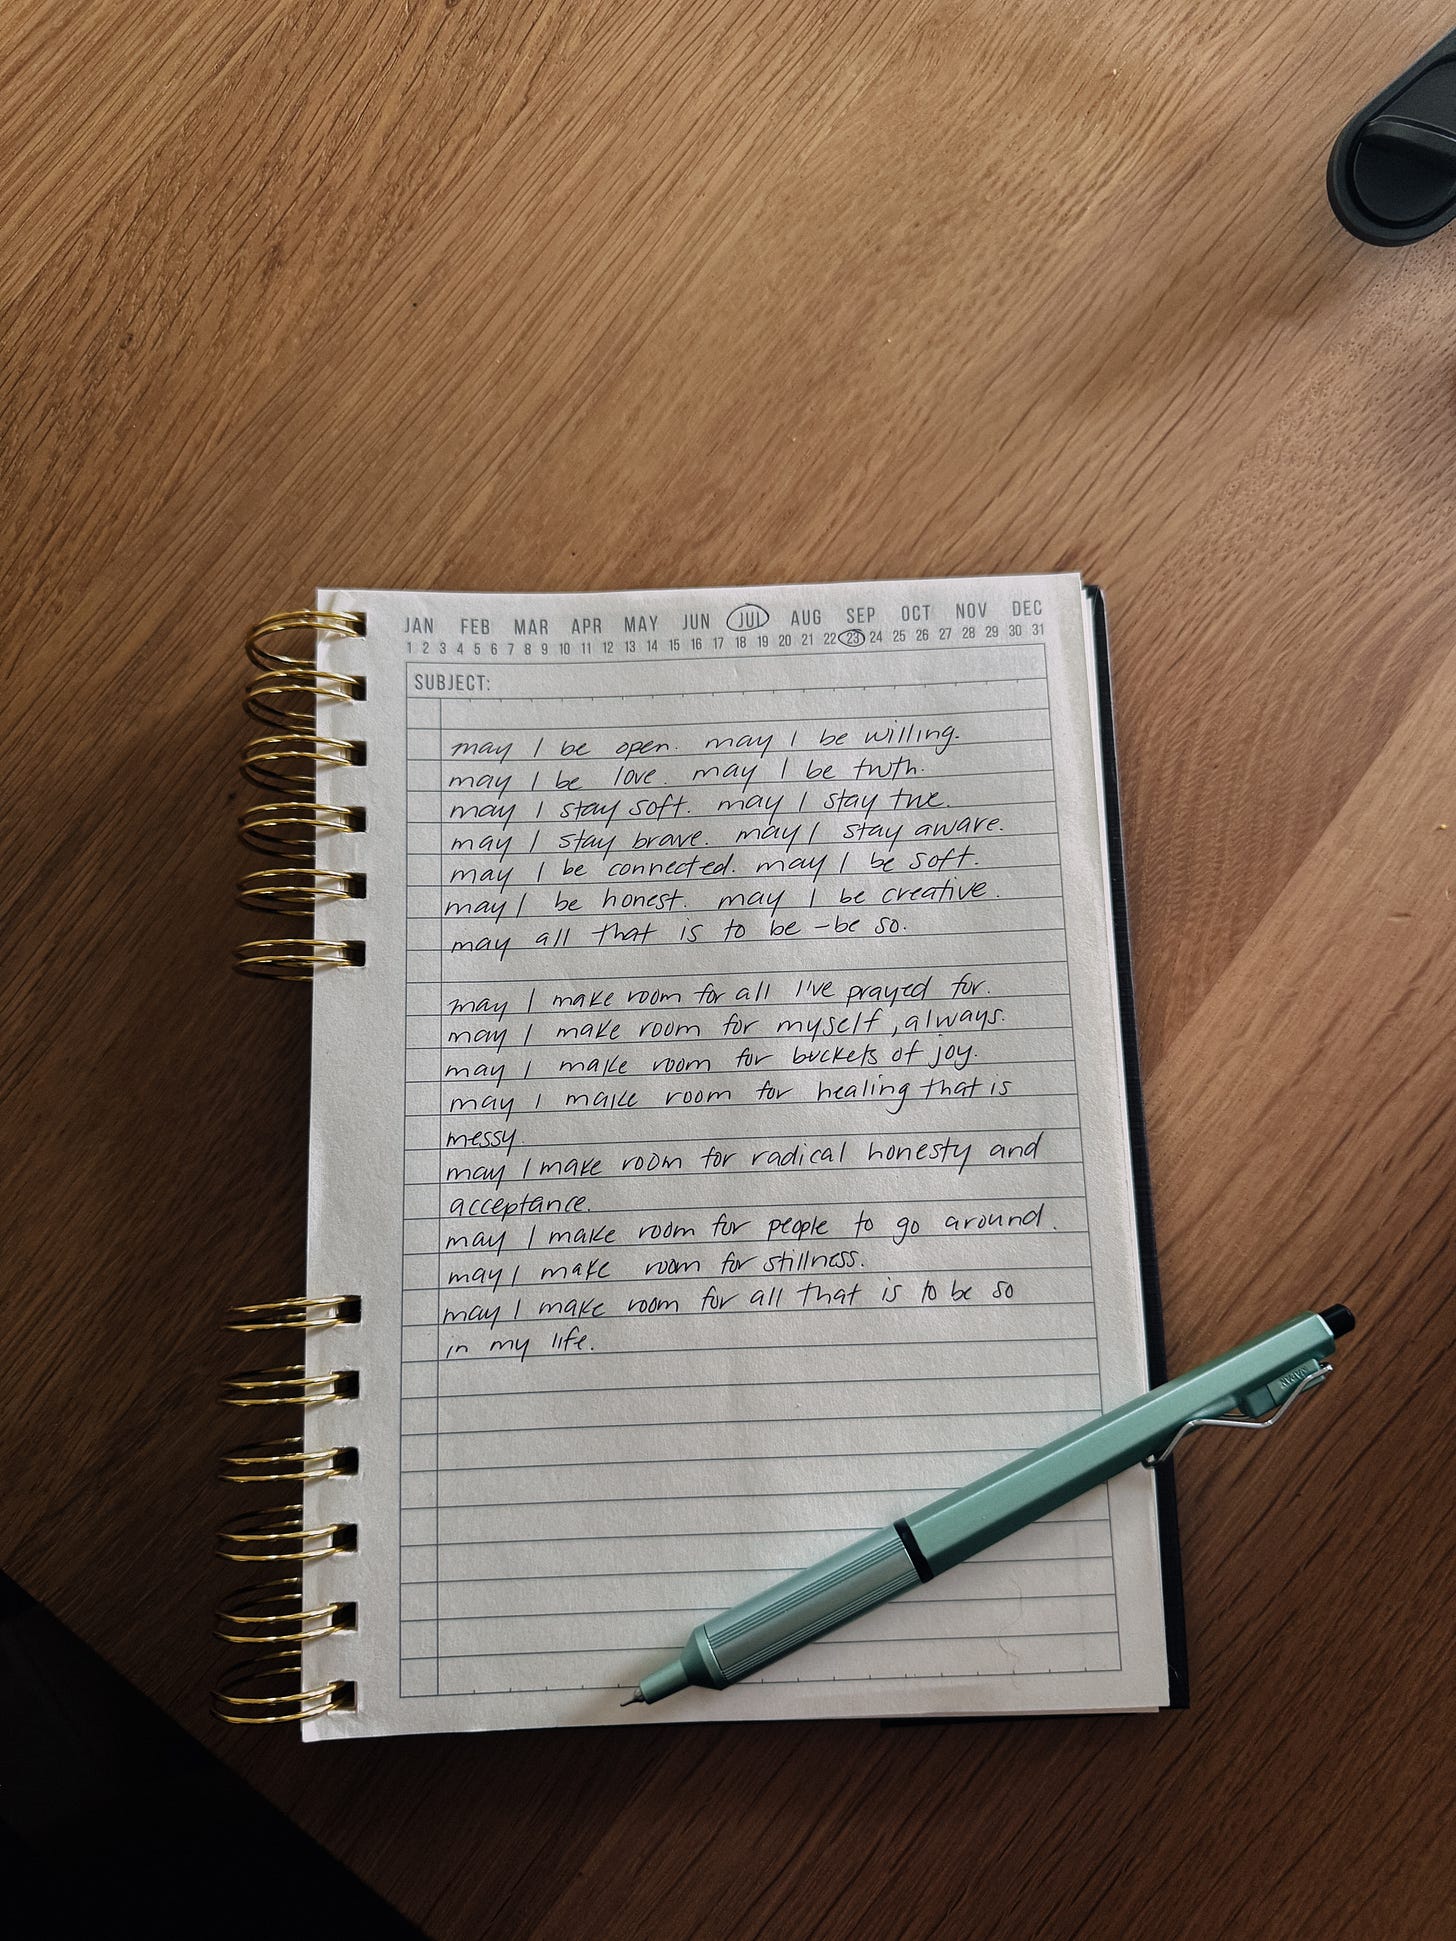 JAN FEB MAR APR MAY JUN JUL AUG SEP OCT NOV DEC
1 2 3 4 5 6 7 8 9 10 11 12 13 14 15 16 17 18 19 20 21 22 23 24 25 26 27 28 29 30 31
SUBJECT:
may I be open. may I be willing.
may I be love. may I be truth.
may I stay soft. may I stay true.
may I stay brave. may I stay aware.
may I be connected. may I be soft.
may I be honest. may I be creative.
may all that is to be - be so.
may I make room for all I've prayed for.
may I make room for myself, always.
may I make room for buckets of joy.
may I make room for healing that is
messy.
may I make room for radical honesty and
acceptance.
may I make room for people to go around.
may I make room for stillness.
may I make room for all that is to be so
in my life.
JAPAN